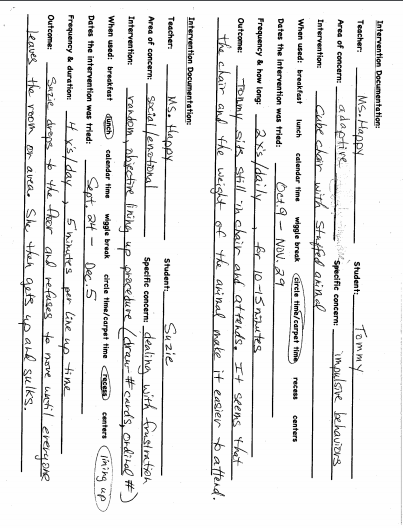 Intervention Documentation:
Teacher: Ms. Happy Student: Tommy
Area of concern: adaptive Specific concern: impulsive behaviors
Intervention: Cube chair with stuffed animal
When used: breakfast lunch calendar time wiggle break circle time/carpet time recess centers
Dates the intervention was tried: Oct 9 - Nov. 29
Frequency & how long: 2 x's/daily, for 10-15 minutes
Outcome: Tommy sits still in chair and attends. It seems that
the chair and the weight of the animal make it easier to attend.
Intervention Documentation:
Teacher: Ms. Happy Student: Suzie
Area of concern: social/emotional Specific concern: dealing with frustration
Intervention: random, objective lining up procedure (draw # cards, ordinal #)
When used: breakfast lunch calendar time wiggle break circle time/carpet time recess centers lining up
Dates the intervention was tried: Sept. 24 - Dec. 5
Frequency & duration: 4 x's/day, 5 minutes per line up time
Outcome: Suzie drops to the floor and refuses to move until everyone
leaves the room or area. She then gets up and sulks.